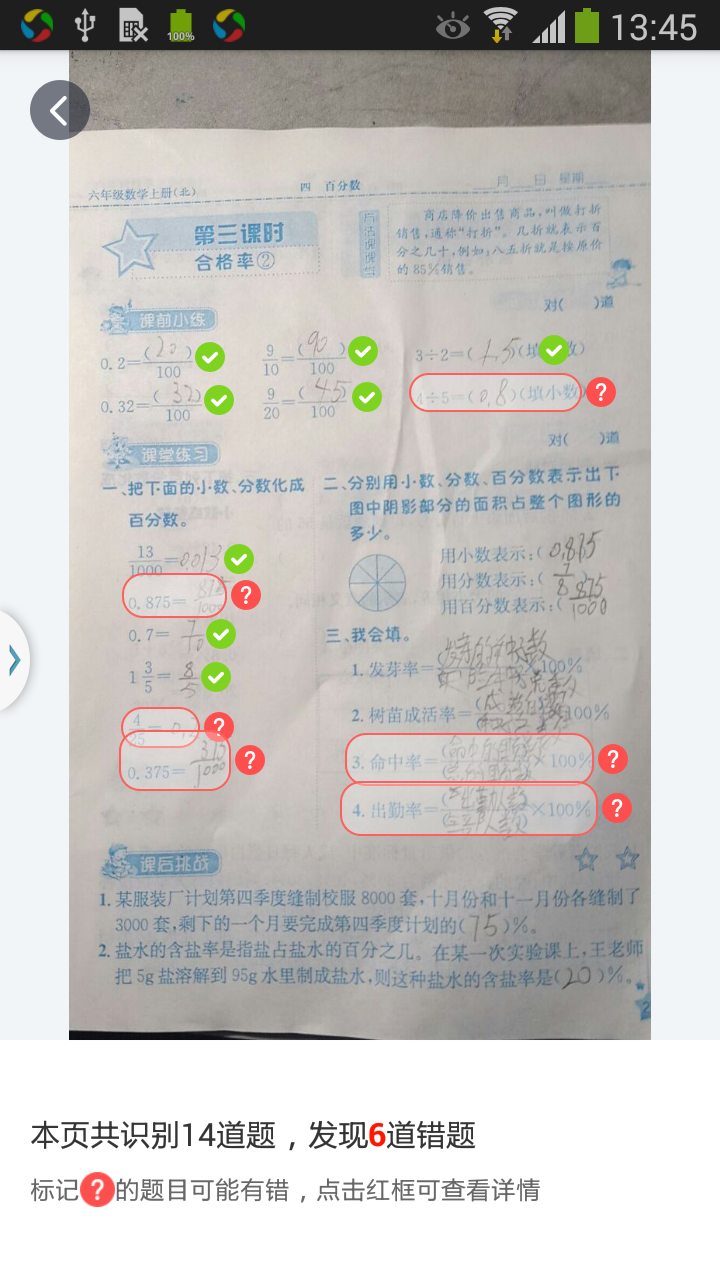 100%
13:45
六年级数学上册(北)
四 百分数
月 日 星期
第三课时
合格率②
商店降价出售商品,叫做打折
销售,通称“打折”。几折就表示百
分之几十,例如:八五折就是按原价
的85%销售。
课前小练
对( )道
0.2=(20)/100
9/10=(90)/100
3÷2=(1.5)(填 数)
0.32=(32)/100
9/20=(45)/100
4÷5=(0.8)(填小数)
课堂练习
对( )道
一、把下面的小数、分数化成
百分数。
13/1000=0.013
0.875=875/1000
0.7=7/10
1 3/5=8/5
4/25=0.
0.375=375/1000
二、分别用小数、分数、百分数表示出下
图中阴影部分的面积占整个图形的
多少。
用小数表示:(0.875
用分数表示:(7/8
用百分数表示:(875/1000
三、我会填。
1. 发芽率= ×100%
2. 树苗成活率= 100%
3. 命中率= ×100%
4. 出勤率= ×100%
课后挑战
1. 某服装厂计划第四季度缝制校服8000套,十月份和十一月份各缝制了
3000套,剩下的一个月要完成第四季度计划的(75)%。
2. 盐水的含盐率是指盐占盐水的百分之几。在某一次实验课上,王老师
把5g盐溶解到95g水里制成盐水,则这种盐水的含盐率是(20)%。
本页共识别14道题,发现6道错题
标记?的题目可能有错,点击红框可查看详情